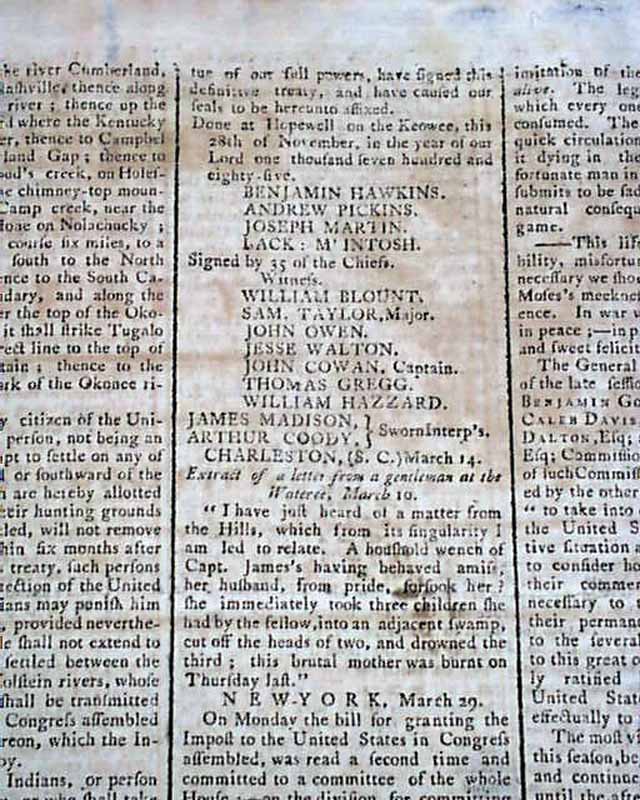 he river Cumberland,
Nashville, thence along
river ; thence up the
rd where the Kentucky
er, thence to Campbel
land Gap ; thence to
oud's creek, on Holes-
he chimney-top moun-
Camp creek, near the
done on Nolachucky ;
course six miles, to a
south to the North
ence to the South Ca-
ndary, and along the
er the top of the Oko-
it shall strike Tugalo
rect line to the top of
tain ; thence to the
ark of the Okonee ri-
y citizen of the Uni-
person, not being an
pt to settle on any of
or southward of the
h are hereby allotted
heir hunting grounds
tled, will not remove
hin six months after
treaty, such persons
tection of the United
ians may punish him
, provided neverthe-
le shall not extend to
settled between the
olstein rivers, whose
shall be transmitted
Congress assembled
reon, which the In-
by.
Indians, or person
or who shall take
tue of our full powers, have signed this
definitive treaty, and have caused our
seals to be hereunto affixed.
Done at Hopewell on the Keowee, this
28th of November, in the year of our
Lord one thousand seven hundred and
eighty-five.
BENJAMIN HAWKINS.
ANDREW PICKINS.
JOSEPH MARTIN.
LACK: M'INTOSH.
Signed by 35 of the Chiefs.
Witness.
WILLIAM BLOUNT.
SAM. TAYLOR, Major.
JOHN OWEN.
JESSE WALTON.
JOHN COWAN, Captain.
THOMAS GREGG.
WILLIAM HAZZARD.
JAMES MADISON, } Sworn Interp's.
ARTHUR COODY,
CHARLESTON, (S. C.) March 14.
Extract of a letter from a gentleman at the
Wateree, March 10.
" I have just heard of a matter from
the Hills, which from its singularity I
am led to relate. A houshold wench of
Capt. James's having behaved amiss,
her husband, from pride, forsook her ?
she immediately took three children she
had by the fellow, into an adjacent swamp,
cut off the heads of two, and drowned the
third ; this brutal mother was burnt on
Thursday last."
NEW-YORK, March 29.
On Monday the bill for granting the
Impost to the United States in Congress
assembled, was read a second time and
committed to a committee of the whole
House ;—on the division, for committing
imitation of the
alive. The leg
which every on
consumed. The
quick circulation
it dying in the
fortunate man in
submits to be sad
natural consequ
game.
—This life
bility, misfortu
necessary we shou
Moses's meekness
ence. In war w
in peace ;—in p
and sweet felicit
The General
of the late sessio
BENJAMIN GO
CALEB DAVIS
DALTON, Esq;
Esq; Commissio
of such Commiss
ed by the other
" to take into c
the United S
tive situation a
to consider ho
their comme
necessary to
their perman
to the several
to this great o
ly ratified
United State
effectually to
The most vi
this season, be
and continue
until the aft